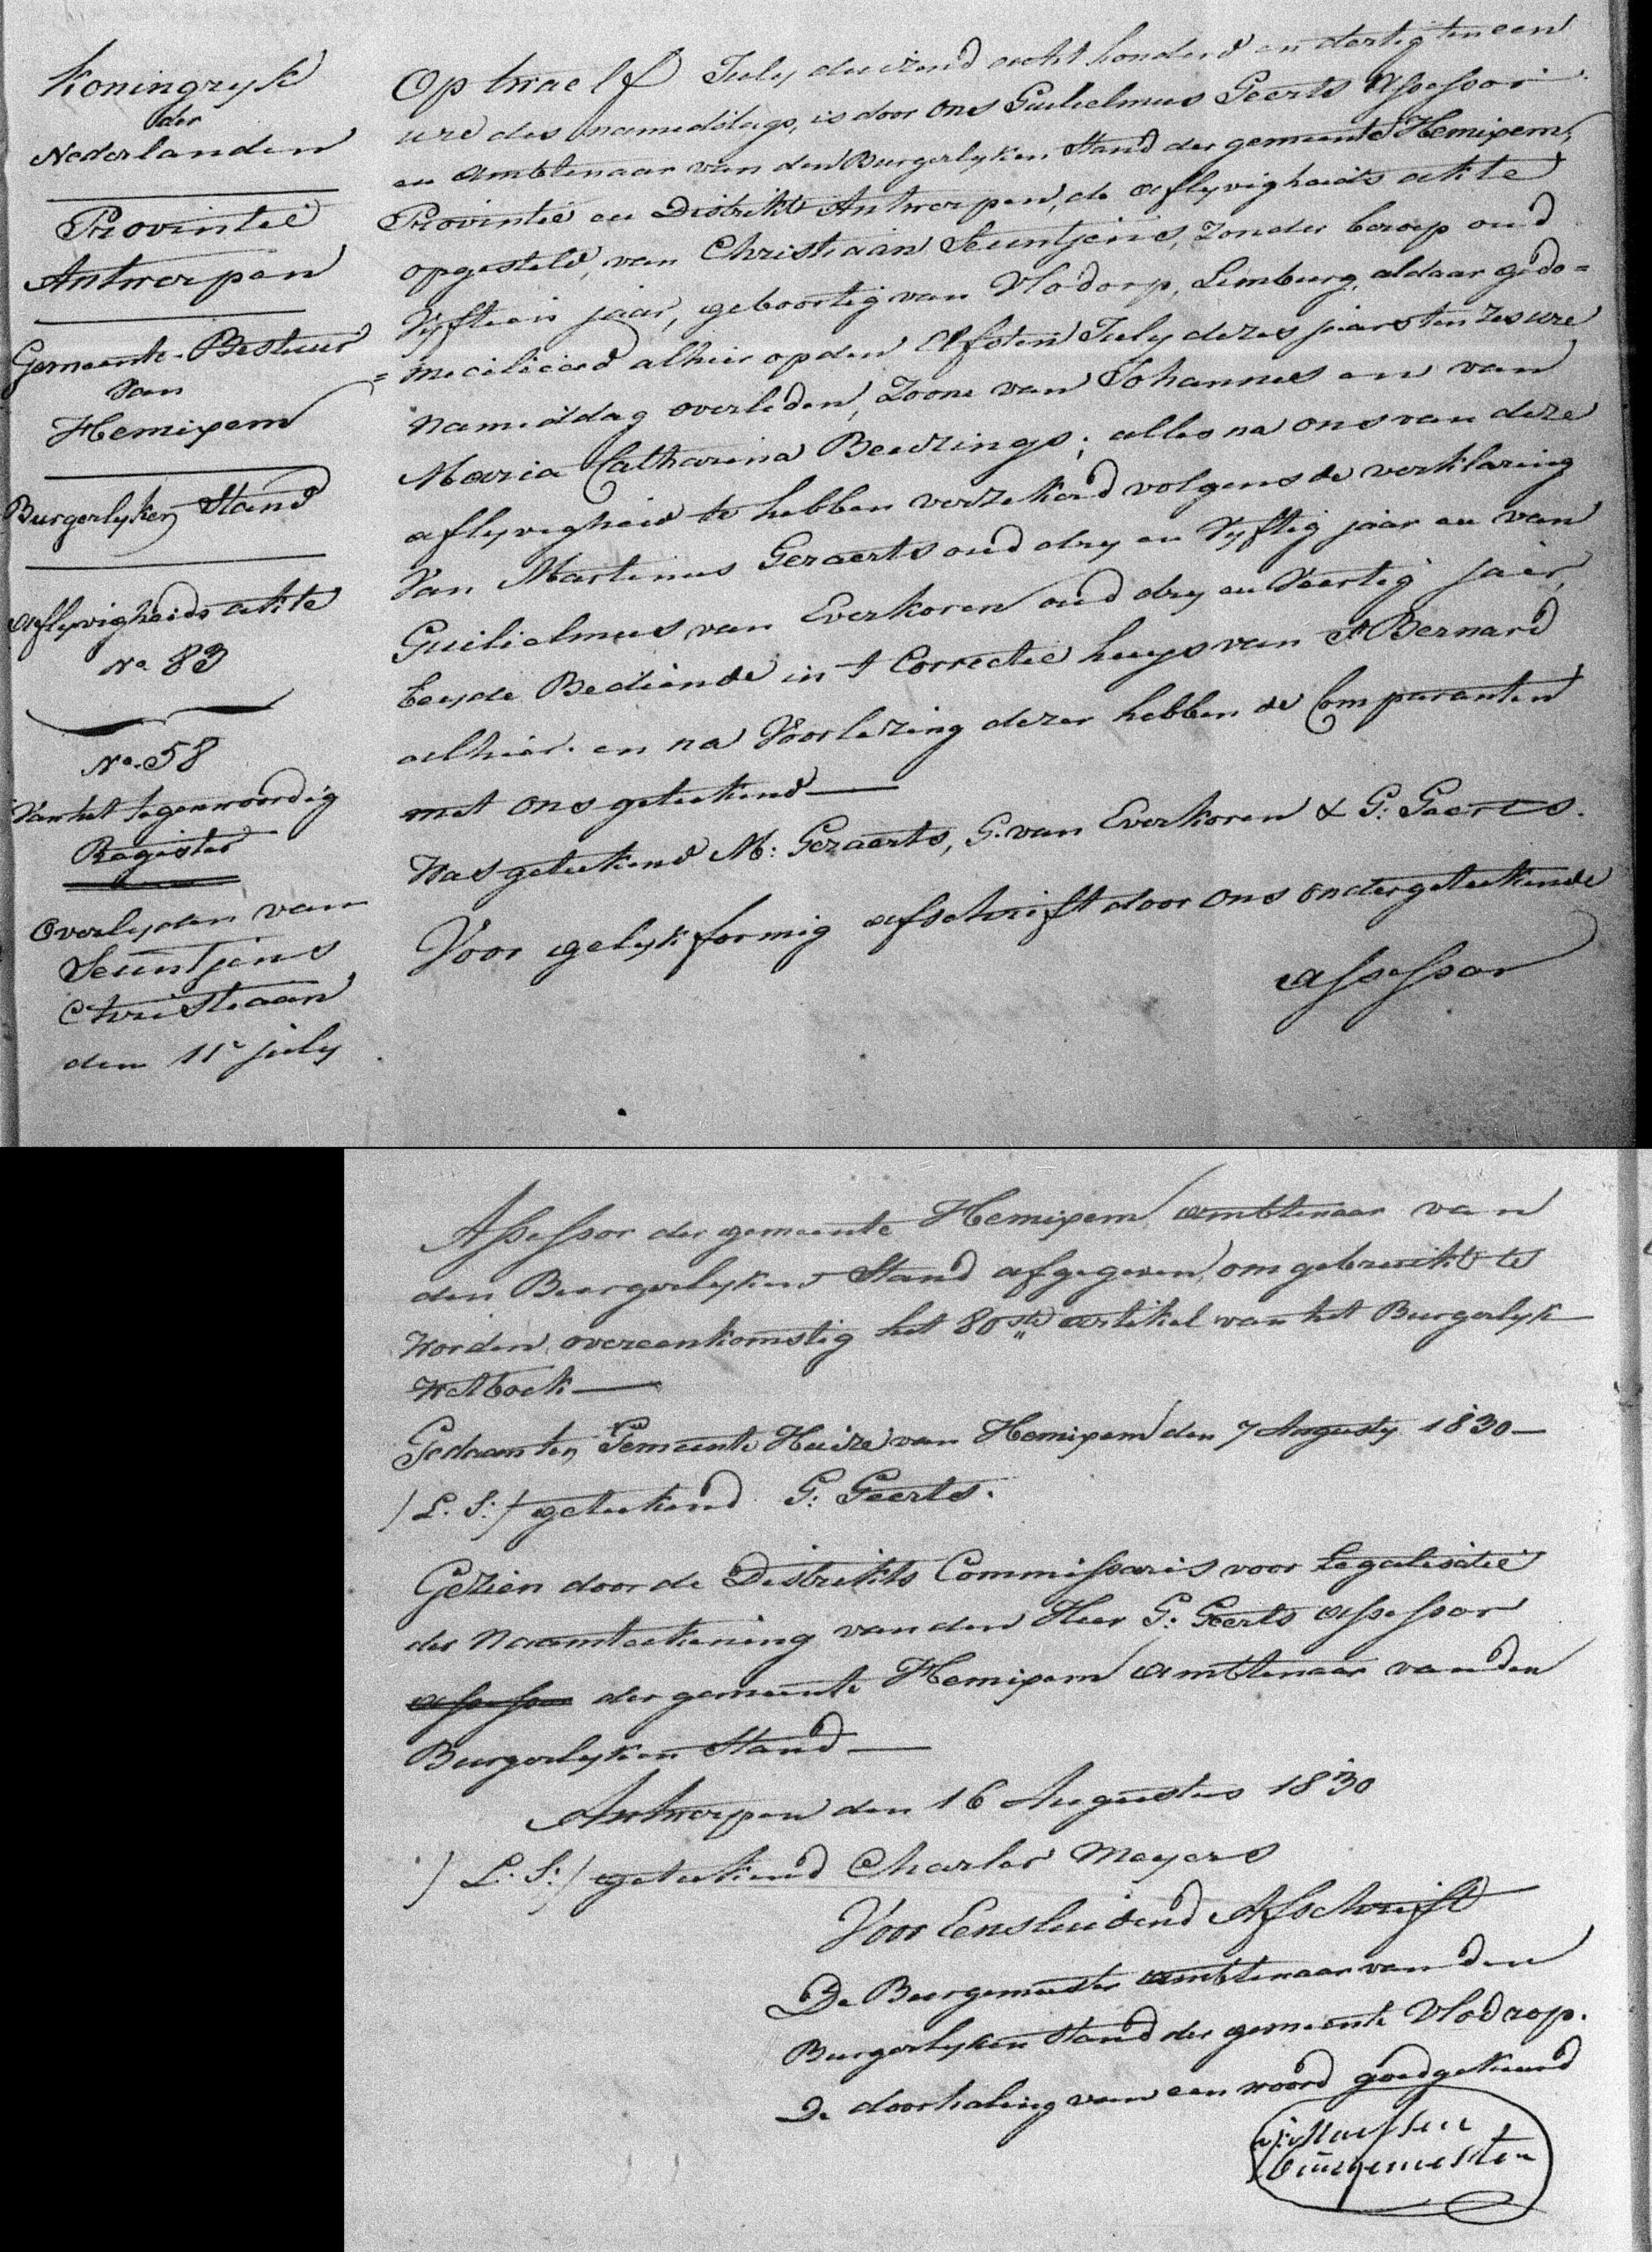 Koningryk
der
Nederlanden
Provintie
Antwerpen
Gemeente-Bestuur
van
Hemixem
Burgerlyken Stand
Aflyvigheids akte
No 83
No. 58
Van het tegenwoordig
Register
Overlyden van
Seuntjens
Christiaan
den 11e july
Op twaelf July duizend acht honderd en dertig ten een
ure des namiddags, is door Ons Guilielmus Geerts Assessor
en Ambtenaar van den Burgerlyken Stand der gemeente Hemixem,
Provintie en Distrikt Antwerpen, de aflyvigheids akte
opgesteld, van Christiaan Seuntjens, Zonder beroep oud
Vyftien jaar, geboortig van Vlodorp, Limburg, aldaar gedo=
=micilieerd alhier op den Elfsten July dezes jaars ten zes ure
Namiddag overleden, Zoone van Johannes en van
Maria Catharina Beurzings; alles na ons van deze
aflyvigheid te hebben verzekerd volgens de verklaring
Van Martinus Geraerts oud dry en Vyftig jaar en van
Guilielmus van Everkoren oud dry en Veertig jaer,
beyde Bediende in 't Correctie huys van St Bernard
alhier. en na Voorlezing dezer hebben de Comparanten
met ons geteekend
Was geteekend M: Geraerts, G. van Everkoren & G: Geerts.
Voor gelykformig afschrift door Ons ondergeteekende
Assessor
Assessor der gemeente Hemixem, ambtenaar van
den Burgerlyken Stand afgegeven, om gebruikt te
Worden overeenkomstig het 80ste artikel van het Burgerlyk
Wetboek
Gedaan ten Gemeente Huize van Hemixem den 7 Augusty 1830
/L. S:/ geteekend G: Geerts.
Gezien door de Distrikts Commissaris voor Legalisatie
der Naamteekening van den Heer G: Geerts assessor
assessor der gemeente Hemixem Ambtenaar van den
Burgerlyken Stand
Antwerpen den 16 Augustus 1830
/L. S:/ geteekend Charles Meyers
Voor Eensluidend Afschrift
De Burgemeester ambtenaar van den
Burgerlyken Stand der gemeente Vlodrop.
De doorhaling van een woord goedgekeurd
burgemester